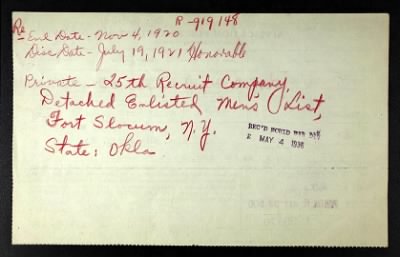 R-919148
Re Enl Date - Nov 4, 1920
Disc Date - July 19, 1921 Honorable
Private - 25th Recruit Company,
Detached Enlisted Men's List,
Fort Slocum, N.Y.
REC'D WORLD WAR DIV.
2 MAY 4 1936
State: Okla